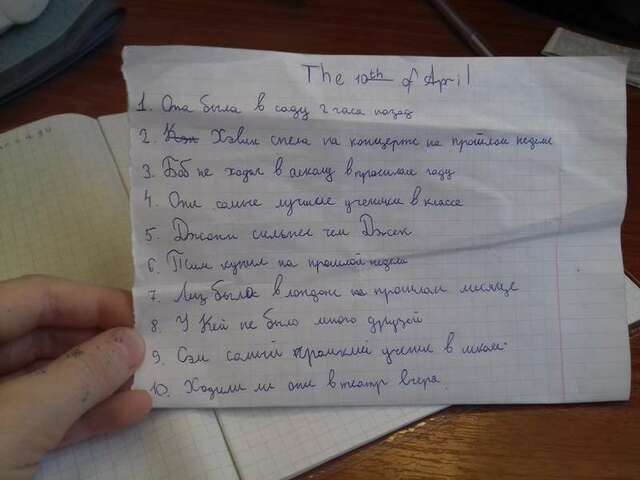 The 10th of April
1. Она была в саду 2 часа назад
2. Хэвин спела на концерте на прошлой неделе
3. Боб не ходил в школу в прошлом году
4. Они самые лучшие ученики в классе
5. Джонни сильнее чем Джек
6. Тим купил на прошлой недели
7. Лиз была в лондоне на прошлом месяце
8. У Кей не было много друзей
9. Сэм самый громкий ученик в школе
10. Ходили ли они в театр вчера.